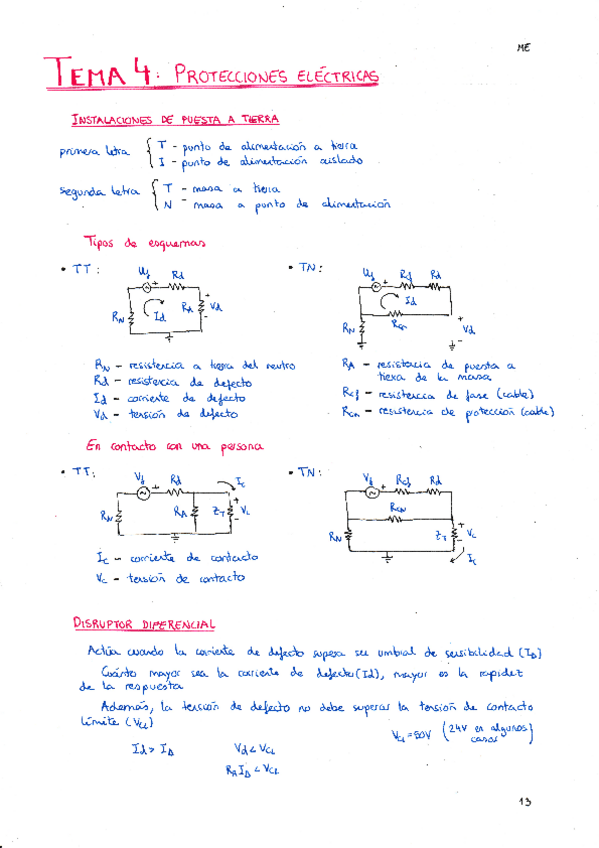 ME
TEMA 4: PROTECCIONES ELÉCTRICAS
INSTALACIONES DE PUESTA A TIERRA
primera letra { T - punto de alimentación a tierra
I - punto de alimentación aislado
segunda letra { T - masa a tierra
N - masa a punto de alimentación
Tipos de esquemas
• TT: • TN:
Uf + Rd Uf + Rcf Rd
RN Id RA + Vd - Id
Rcn RN + Vd -
RN - resistencia a tierra del neutro
Rd - resistencia de defecto
Id - corriente de defecto
Vd - tensión de defecto
RA - resistencia de puesta a
tierra de la masa
Rcf - resistencia de fase (cable)
Rcn - resistencia de protección (cable)
En contacto con una persona
• TT: • TN:
Vf + Rd Ic Vf + Rcf Rd
RN RA ZT + Vc - RCN
RN ZT + Vc - Ic
Ic - corriente de contacto
Vc - tensión de contacto
DISRUPTOR DIFERENCIAL
Actúa cuando la corriente de defecto supera su umbral de sensibilidad (IΔ)
Cuánto mayor sea la corriente de defecto (Id), mayor es la rapidez
de la respuesta
Además, la tensión de defecto no debe superar la tensión de contacto
límite (VCL)
VCL = 50V (24V en algunos
casos)
Id > IΔ Vd < VCL
RA IΔ < VCL
13